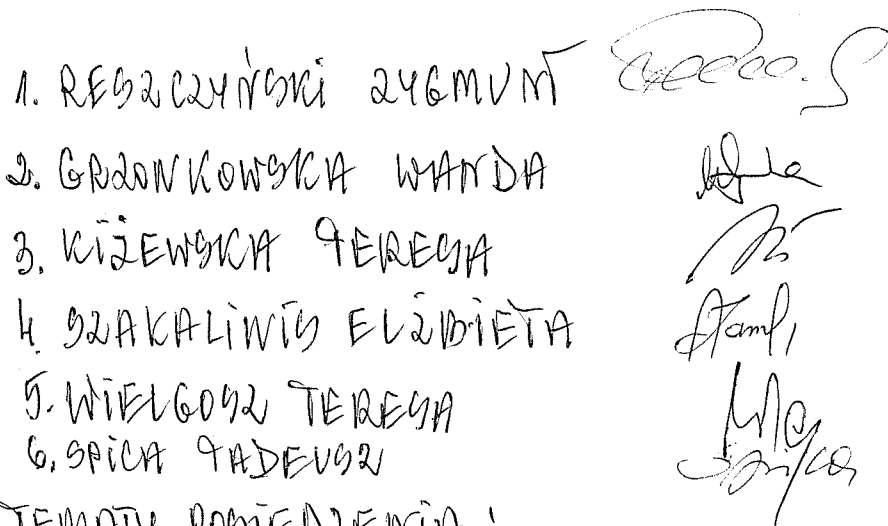 1. RESZCZYŃSKI ZYGMUNT
2. GRZONKOWSKA WANDA
3. KIŻEWSKA TERESA
4. SZAKALINIS ELŻBIETA
5. WIELGOSZ TERESA
6. SPICA TADEUSZ
TEMATY POSIEDZENIA: